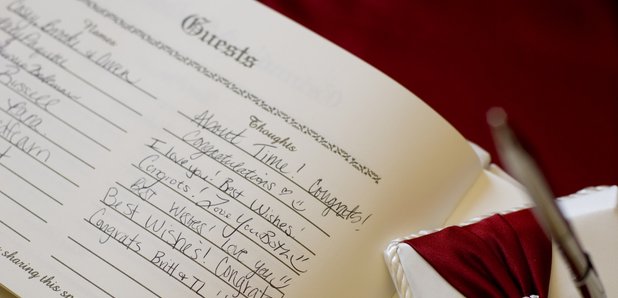 Guests
Names
Thoughts
Casey, Brooke & Owen
Russell
Pam
About Time! Congrats!
Congratulations
I love you! Best Wishes!
Congrats! Love You Both
Best Wishes! Love you
Best Wishes! Congrats
Congrats Britt &
sharing this